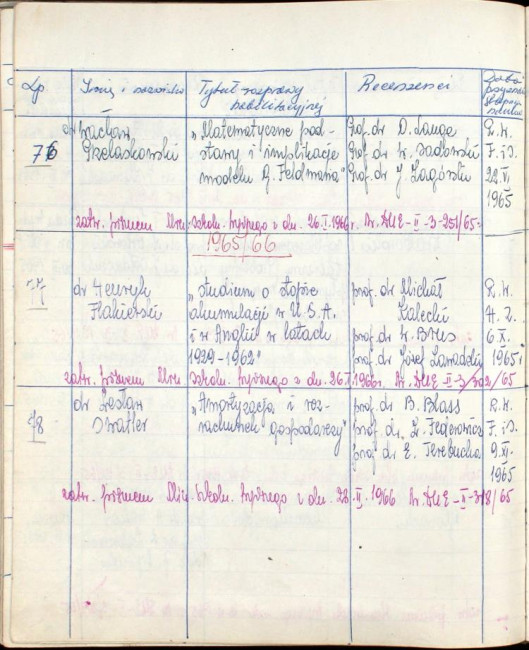 Lp. Imię i nazwisko Tytuł rozprawy habilitacyjnej Recenzenci
76 dr Wacław Przelaskowski
„Matematyczne pod-
stawy i implikacje
modelu G. Feldmana"
Prof. dr O. Lange
Prof. dr W. Sadowski
Prof. dr J. Zagórski
R.W.
F.iS.
22.VI
1965
zatw. pismem Min. Szkoln. Wyższego z dn. 26.II.1966r. Nr. DUE-II-3-251/65.
1965/66
77 dr Henryk
Flakierski
„Studium o stopie
akumulacji w U.S.A.
i w Anglii w latach
1939-1962"
prof. dr Michał
Kalecki
prof. dr W. Brus
prof. dr Józef Zawadzki
R.W.
H.Z.
6 X.
1965r.
zatw. pismem Min. Szkoln. Wyższego z dn. 26.I.1966r. Nr. DUE-II-3/302/65
78 dr Zesław
„Amortyzacja i roz-
rachunek gospodarczy"
prof. dr B. Blass
prof. dr. Z. Fedorowicz
prof. dr. E. Terebucha
R.W.
F.iS.
9.XI.
1965
zatw. pismem Min. Szkoln. Wyższego z dn. 28.II.1966 Nr. DUE-II-3-318/65